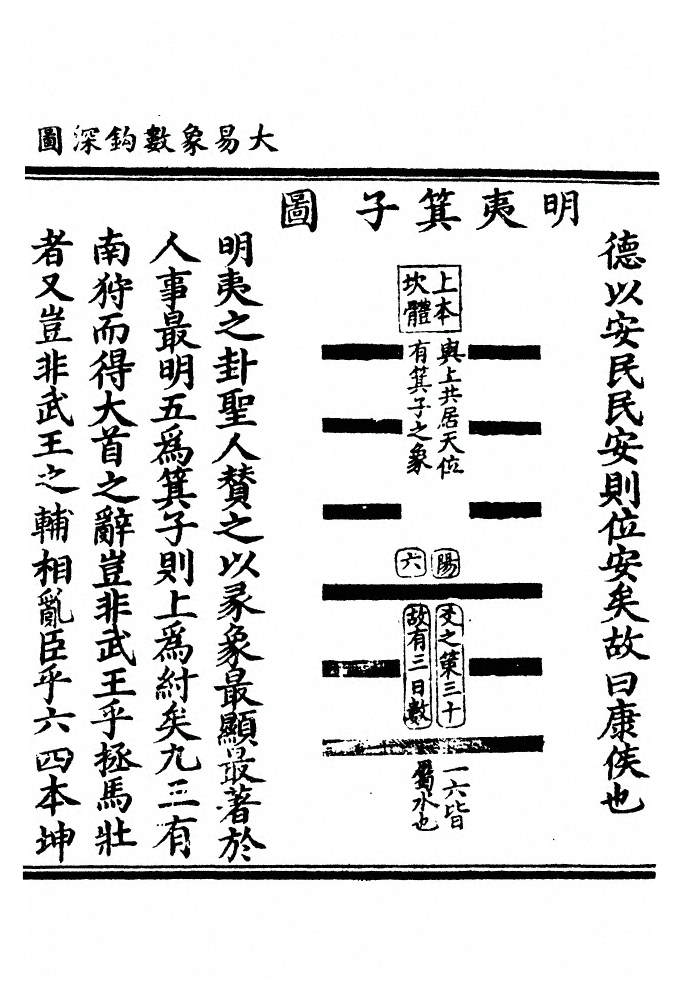 大易象數鈎深圖
德以安民民安則位安矣故曰康侯也
明夷箕子圖
上本
坎體
與上共居天位
有箕子之象
陽
爻之策三十
六
故有三日數
一六皆
屬水也
明夷之卦聖人賛之以彖象最顯最著於
人事最明五爲箕子則上爲紂矣九三有
南狩而得大首之辭豈非武王乎拯馬壯
者又豈非武王之輔相亂臣乎六四本坤